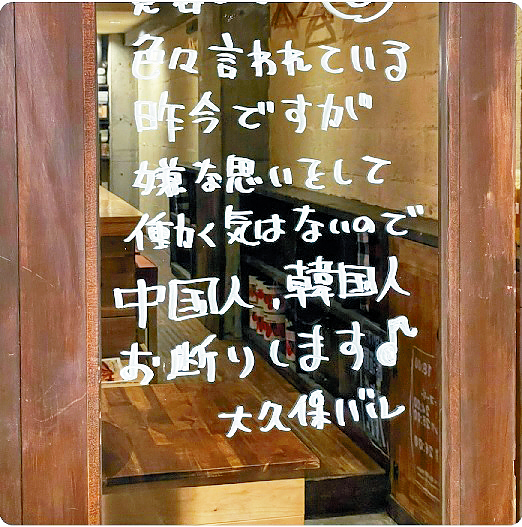 色々言われている
昨今ですが
嫌な思いをして
働く気はないので
中国人、韓国人
お断りします♪
大久保バル